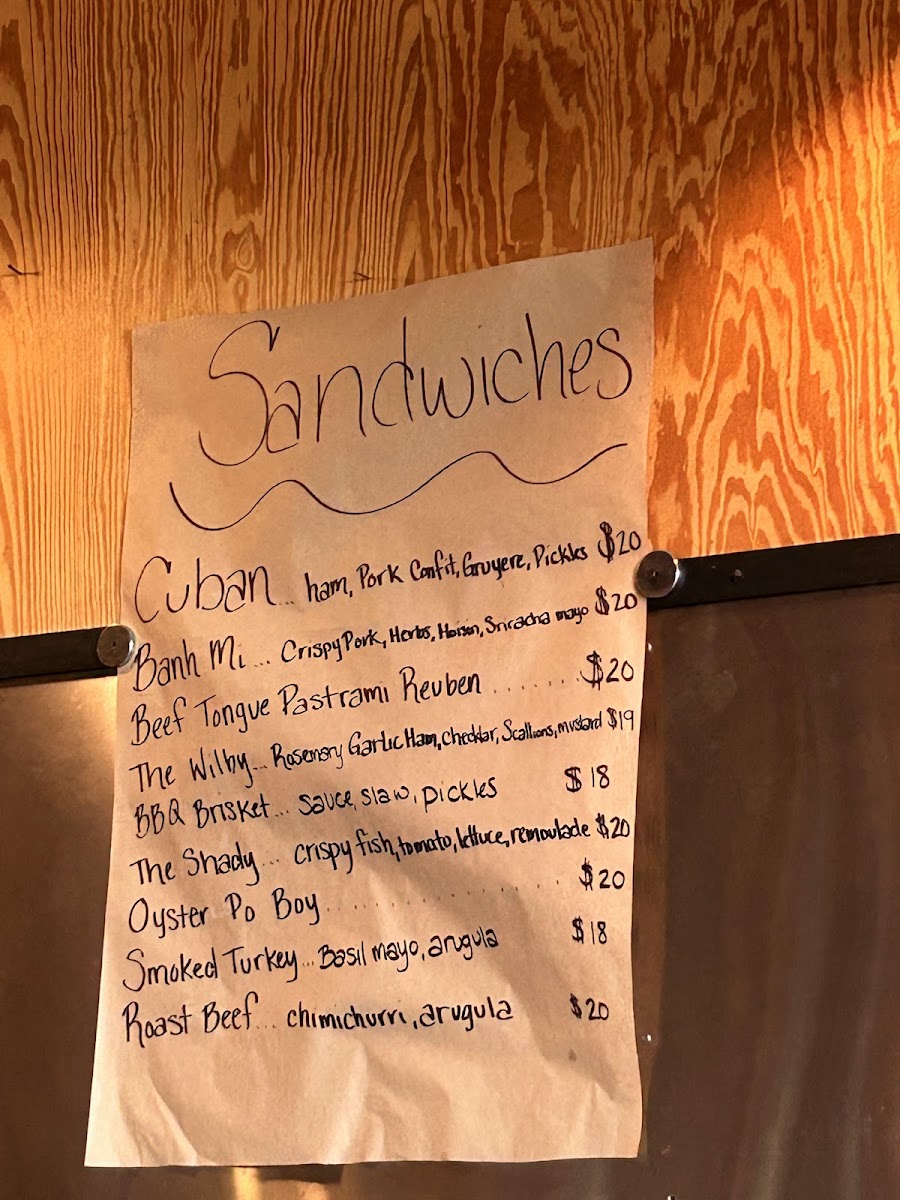 Sandwiches
Cuban... ham, Pork Confit, Gruyere, Pickles $20
Banh Mi... Crispy Pork, Herbs, Hoisin, Sriracha mayo $20
Beef Tongue Pastrami Reuben ....... $20
The Wilby... Rosemary Garlic Ham, cheddar, Scallions, mustard $19
BBQ Brisket... sauce, slaw, pickles $18
The Shady... crispy fish, tomato, lettuce, remoulade $20
Oyster Po Boy .............. $20
Smoked Turkey... Basil mayo, arugula $18
Roast Beef... chimichurri, arugula $20